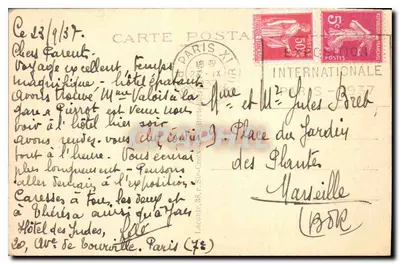 Ce 23/9/37.
Chers Parent.
Voyage excellent, temps
magnifique - hôtel épatant
avons trouvé Mme Valois à la
gare. Pierrot est venu nous
voir à l'hôtel hier soir
avons rendez-vous chez
tout à l'heure. Vous écrirai
plus longuement - Pensons
aller demain à l'exposition.
Caresses à tous les deux et
à Thérèse ainsi qu'à
Hôtel des Indes,
20, Ave de Tourville. Paris (7e)
CARTE POSTALE
PARIS XI
50c
5c
POSTES
EXPOSITION
INTERNATIONALE
PARIS - 1937
Mme et Mr Jules Bret
9 Place du Jardin
des Plantes
Marseille
(BdR)